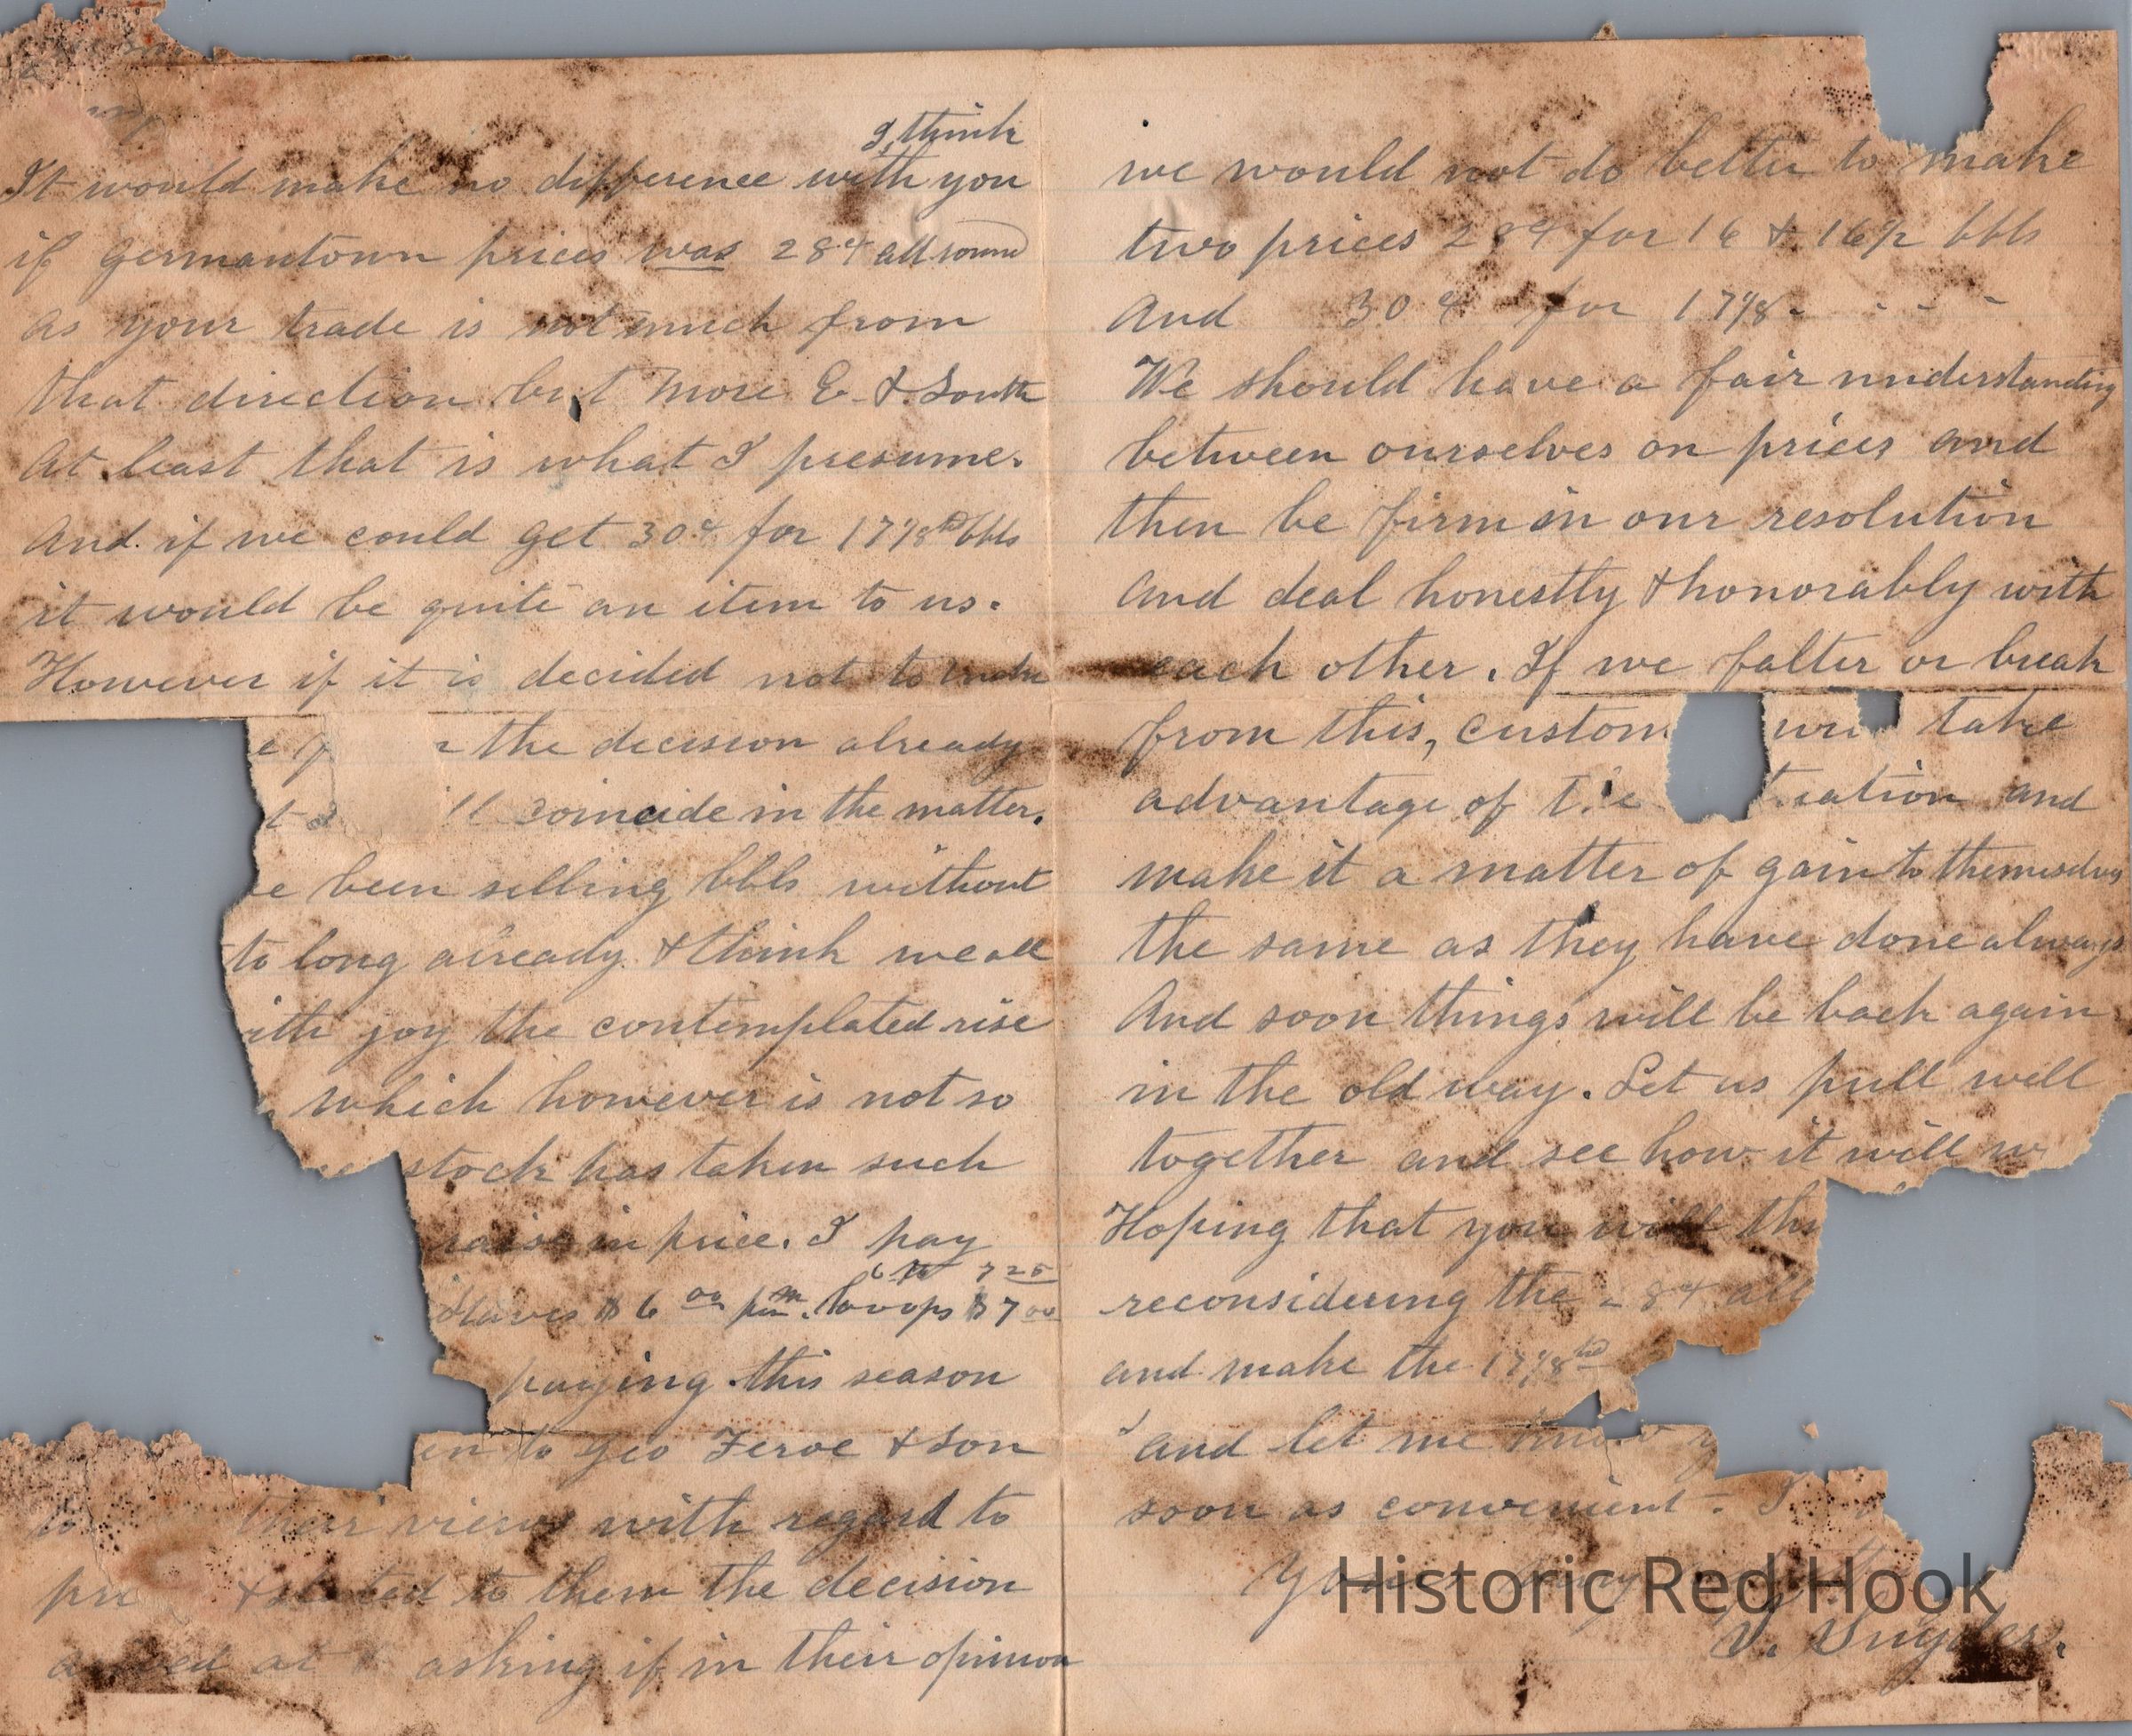 I think
It would make no difference with you
if Germantown prices was 28¢ all round
as your trade is not much from
that direction but more E. & South
At least that is what I presume.
And if we could get 30¢ for 17 1/8 hd bbls
it would be quite an item to us.
However if it is decided not to
the decision already
coincide in the matter.
been selling bbls without
to long already & think we all
ith joy the contemplated rise
which however is not so
stock has taken such
raise in price. I pay
7 25
Staves $ 6 00 per m. hoops $ 7 00
paying this season
en to Geo Feroe & Son
their views with regard to
& stated to them the decision
at & asking if in their opinion
we would not do better to make
two prices 28¢ for 16 & 16 1/2 bbls
And 30¢ for 17 1/8 - - - -
We should have a fair understanding
between ourselves on prices and
then be firm in our resolution
and deal honestly & honorably with
each other. If we falter or break
from this, custom take
advantage of and
make it a matter of gain to themselves
the same as they have done always
And soon things will be back again
in the old way. Let us pull well
together and see how it will w
Hoping that you will
reconsidering the 8¢ all
and make the 17 1/8 hd
and let me know y
soon as convenient - I
Yours
V. Snyder.
Historic Red Hook